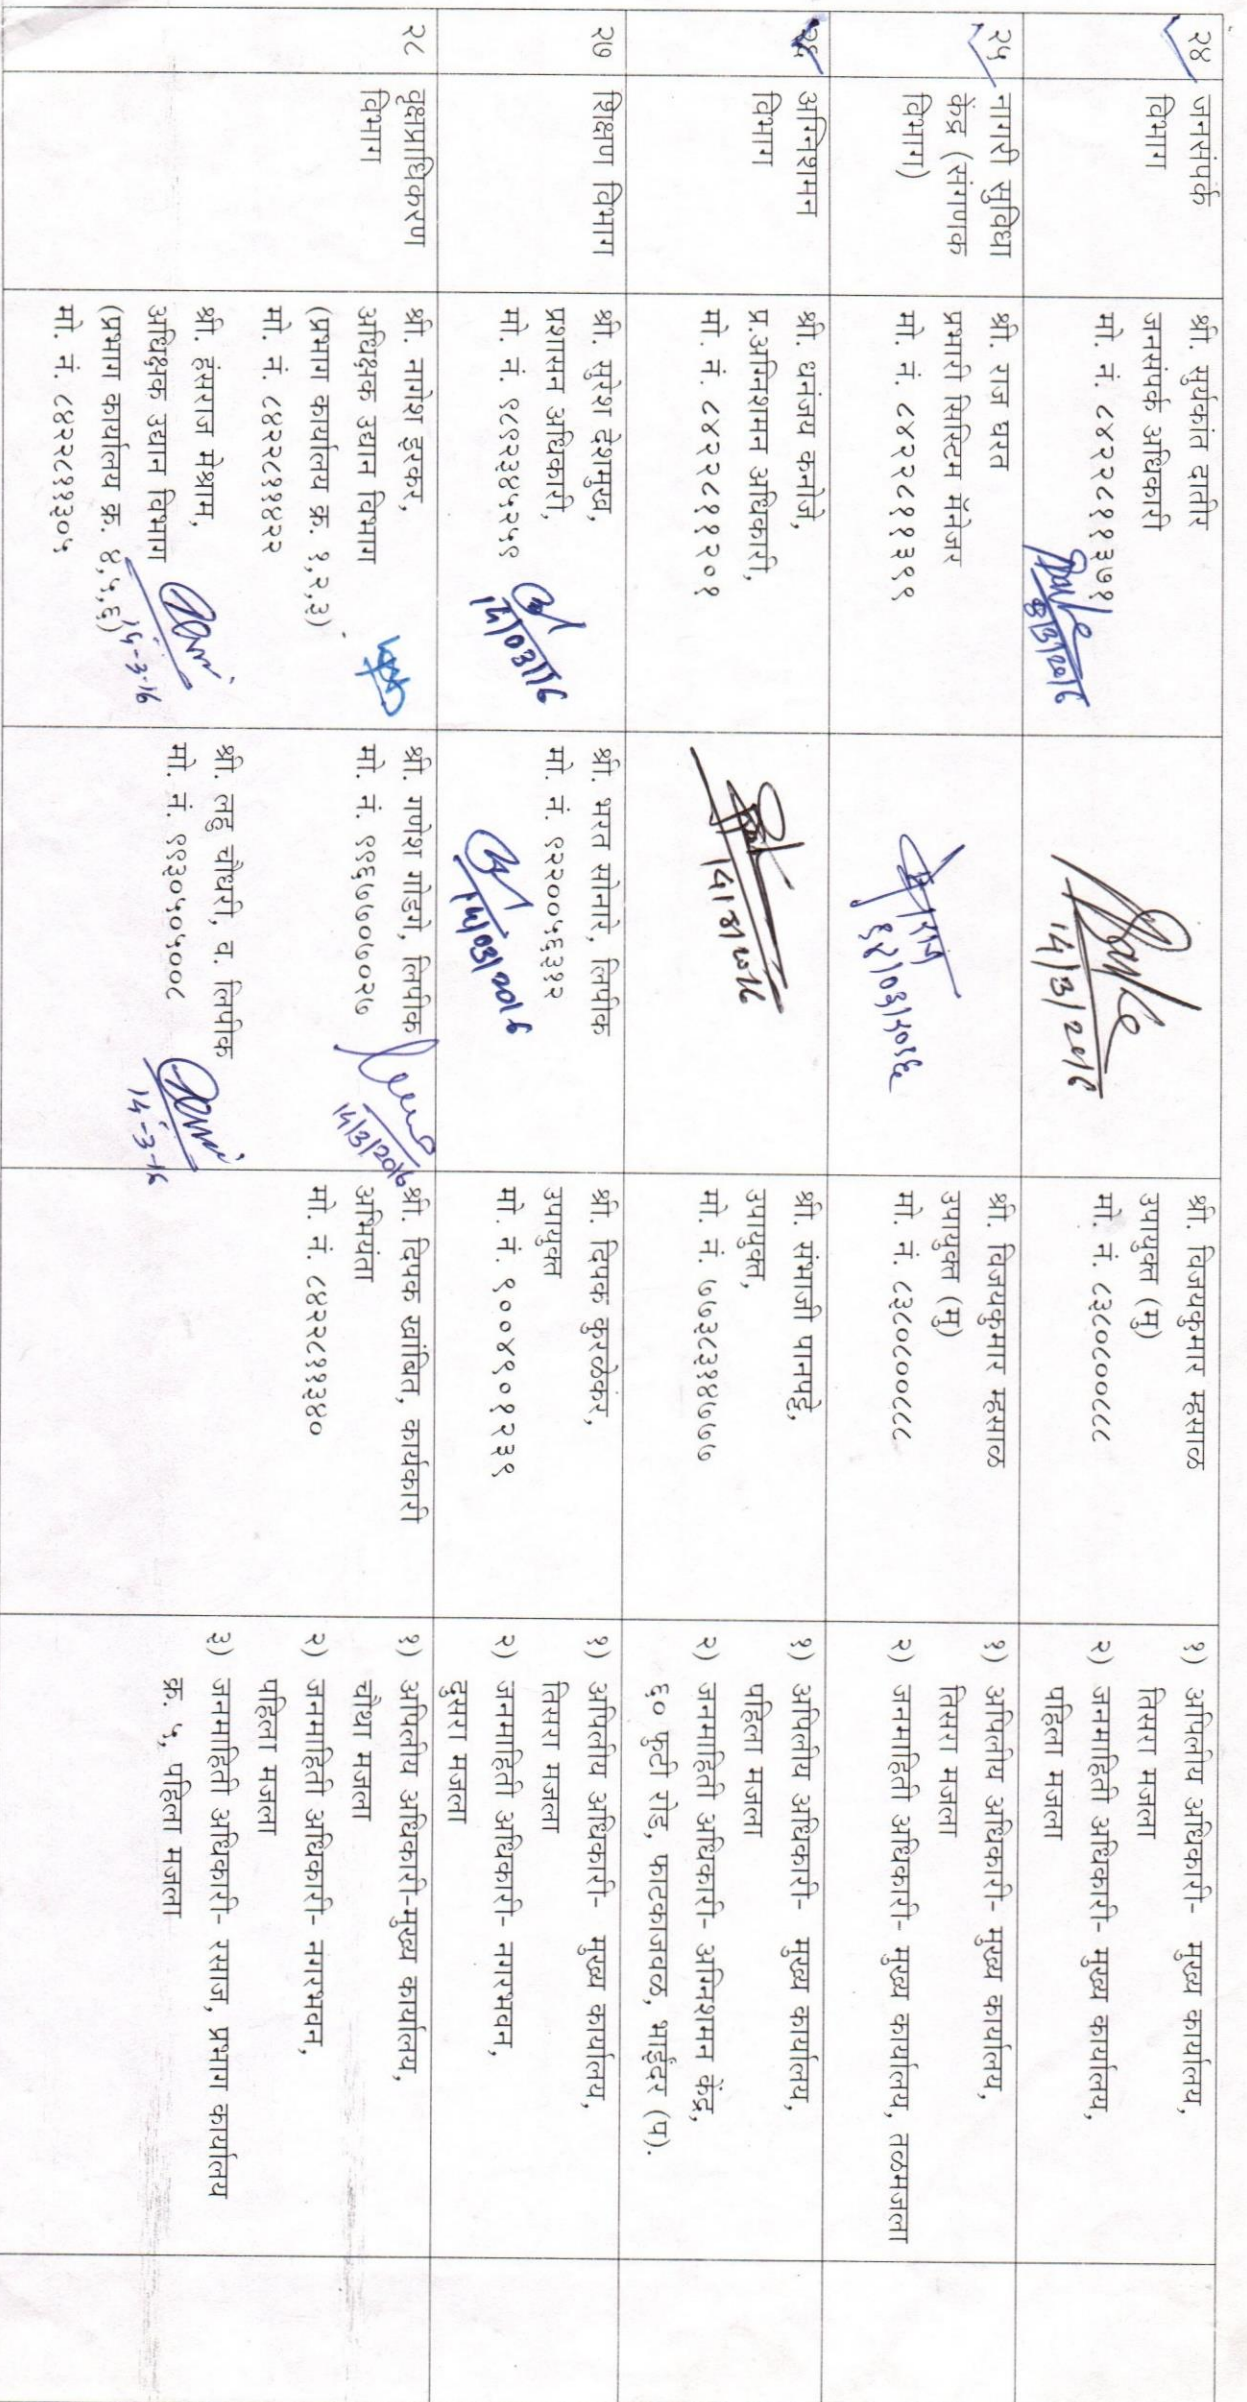 २४
जनसंपर्क
विभाग
श्री. सुर्यकांत दातीर
जनसंपर्क अधिकारी
मो. नं. ८४२२८११३७१
14/3/2016
श्री. विजयकुमार म्हसाळ
उपायुक्त (मु)
मो. नं. ८३८०८००८८८
१) अपिलीय अधिकारी- मुख्य कार्यालय,
तिसरा मजला
२) जनमाहिती अधिकारी- मुख्य कार्यालय,
पहिला मजला
२५
नागरी सुविधा
केंद्र (संगणक
विभाग)
श्री. राज घरत
प्रभारी सिस्टिम मॅनेजर
मो. नं. ८४२२८११३९९
श्री. विजयकुमार म्हसाळ
उपायुक्त (मु)
मो. नं. ८३८०८००८८८
१) अपिलीय अधिकारी- मुख्य कार्यालय,
तिसरा मजला
२) जनमाहिती अधिकारी- मुख्य कार्यालय, तळमजला
२६
अग्निशमन
विभाग
श्री. धनंजय कनोजे,
प्र.अग्निशमन अधिकारी,
मो. नं. ८४२२८११२०१
14/3/2016
श्री. संभाजी पानपट्टे,
उपायुक्त,
मो. नं. ७७३८३१४७७७
१) अपिलीय अधिकारी- मुख्य कार्यालय,
पहिला मजला
२) जनमाहिती अधिकारी- अग्निशमन केंद्र,
६० फुटी रोड, फाटकाजवळ, भाईंदर (प).
२७
शिक्षण विभाग
श्री. सुरेश देशमुख,
प्रशासन अधिकारी,
मो. नं. ९८९२३४५२५९
14/03/16
श्री. भरत सोनारे, लिपीक
मो. नं. ९२२००५६३१२
14/03/2016
श्री. दिपक कुरळेकर,
उपायुक्त
मो. नं. ९००४९०१२३९
१) अपिलीय अधिकारी- मुख्य कार्यालय,
तिसरा मजला
२) जनमाहिती अधिकारी- नगरभवन,
दुसरा मजला
२८
वृक्षप्राधिकरण
विभाग
श्री. नागेश इरकर,
अधिक्षक उद्यान विभाग
(प्रभाग कार्यालय क्र. १,२,३)
मो. नं. ८४२२८११४२२
श्री. हंसराज मेश्राम,
अधिक्षक उद्यान विभाग
(प्रभाग कार्यालय क्र. ४,५,६)
14-3-16
मो. नं. ८४२२८११३०५
श्री. गणेश गोडगे, लिपीक
मो. नं. ९९६७७०७०२७
14/3/2016
श्री. लहु चौधरी, व. लिपीक
मो. नं. ९९३०५०५००८
14-3-16
श्री. दिपक खांबित, कार्यकारी
अभियंता
मो. नं. ८४२२८११३४०
१) अपिलीय अधिकारी-मुख्य कार्यालय,
चौथा मजला
२) जनमाहिती अधिकारी- नगरभवन,
पहिला मजला
३) जनमाहिती अधिकारी- रसाज, प्रभाग कार्यालय
क्र. ५, पहिला मजला